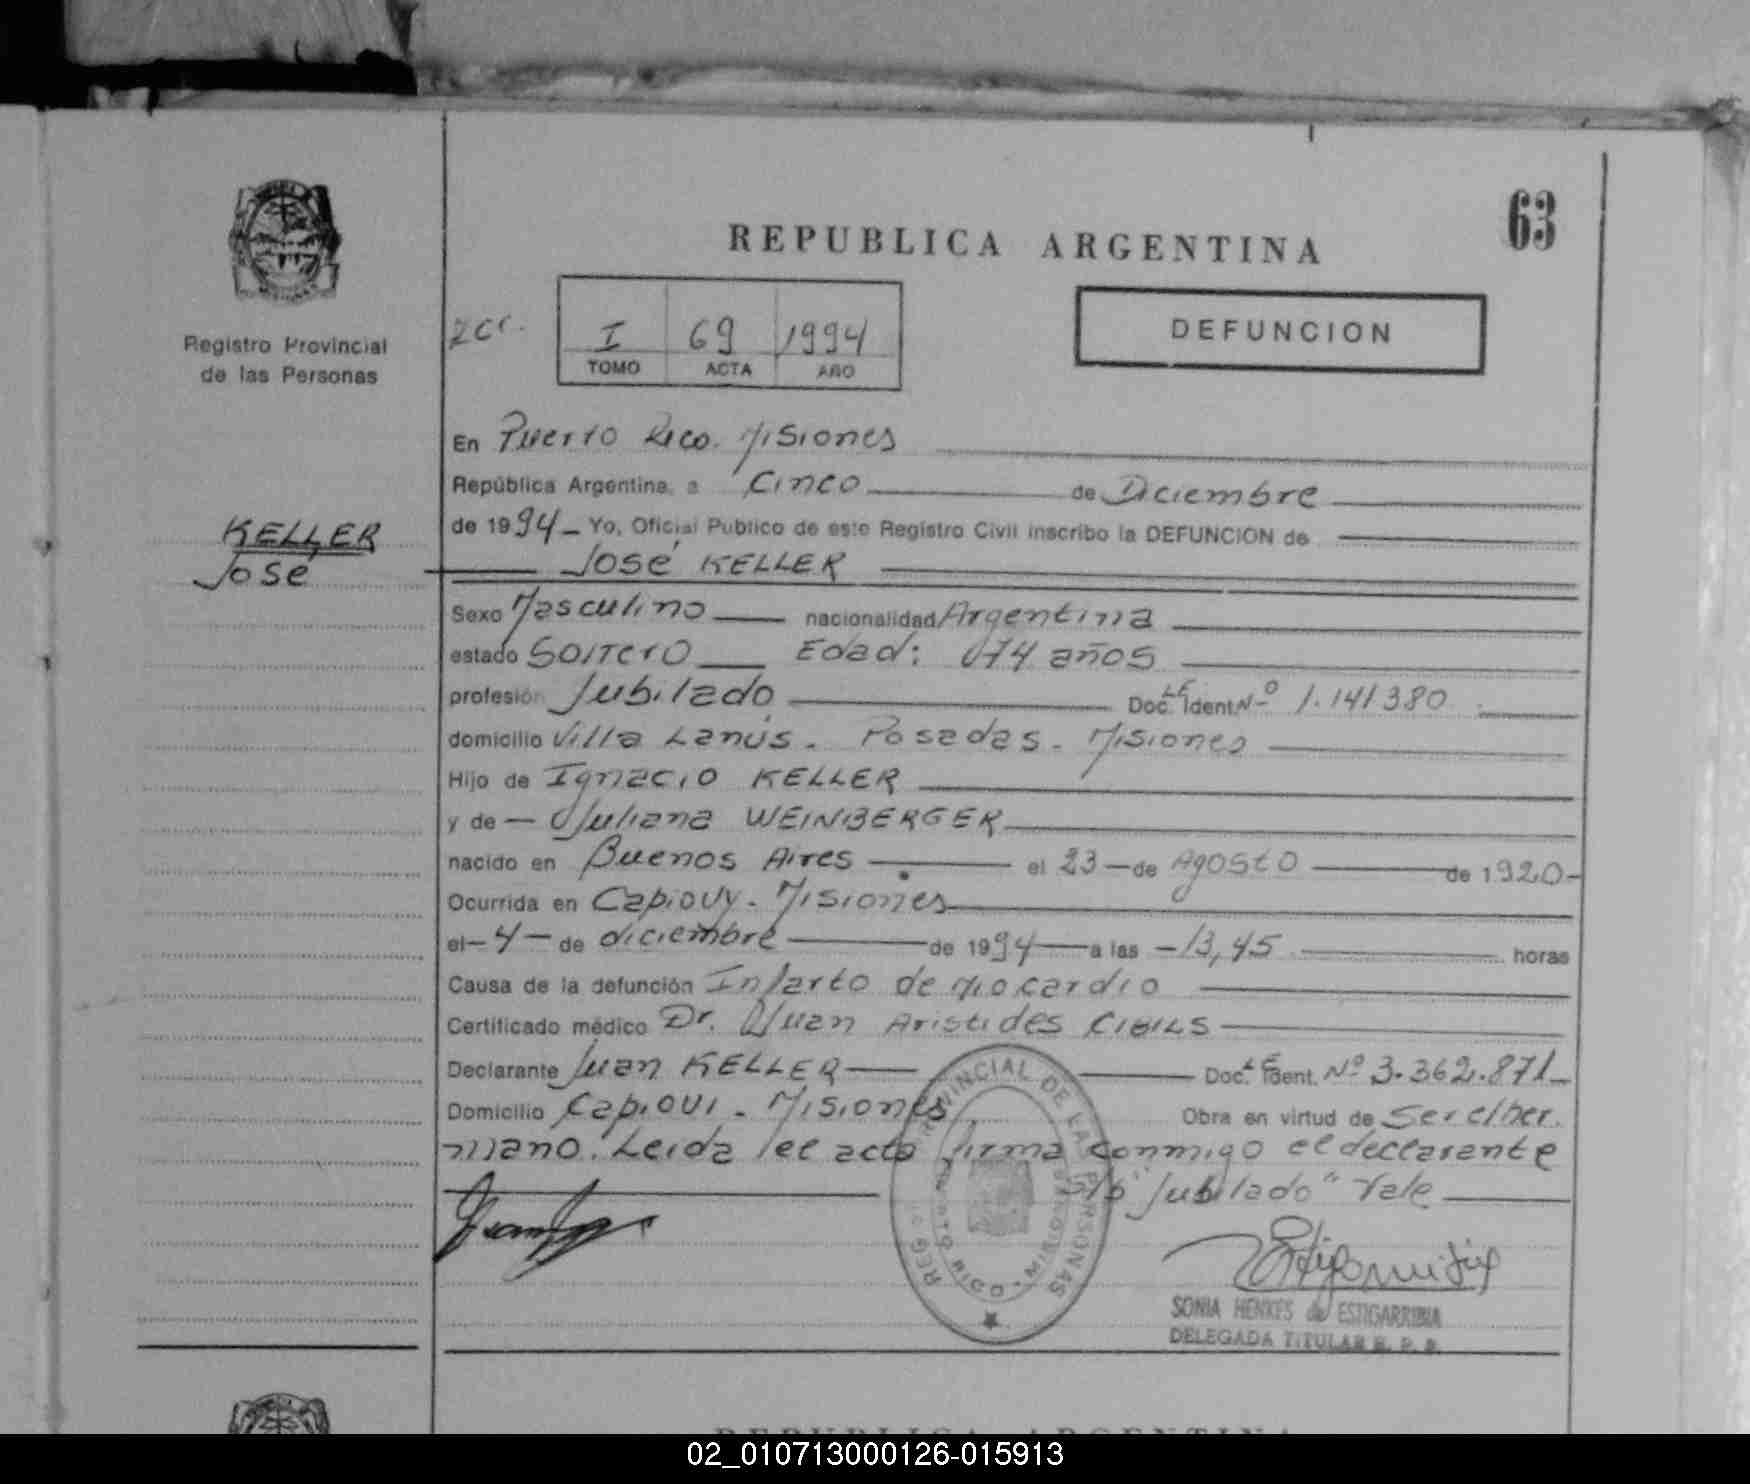 63
REPUBLICA ARGENTINA
Registro Provincial
de las Personas
I 69 1994
TOMO ACTA AÑO
DEFUNCION
En Puerto Rico. Misiones
República Argentina, a Cinco de Diciembre
de 1994 - Yo, Oficial Publico de este Registro Civil inscribo la DEFUNCION de
KELLER
José
José KELLER
Sexo Masculino nacionalidad Argentina
estado Soltero Edad: 74 años
profesión Jubilado Doc. LE Ident. Nº 1.141380
domicilio Villa Lanús. Posadas. Misiones
Hijo de Ignacio KELLER
y de Juliana WEINBERGER
nacido en Buenos Aires el 23 de Agosto de 1920
Ocurrida en Capiovy. Misiones
el 4 de diciembre de 1994 a las 13,45 horas
Causa de la defunción Infarto de miocardio
Certificado médico Dr. Juan Aristides CIBILS
Declarante Juan KELLER Doc. LE Ident. Nº 3.362.871
Domicilio Capiovi. Misiones Obra en virtud de Ser el her.
mano. Leida lel acta firma conmigo el declarante
S/b "Jubilado" Vale
REG PROVINCIAL DE LAS PERSONAS
PUERTO RICO - MISIONES
SONIA HENKES de ESTIGARRIBIA
DELEGADA TITULAR R. P. P.
REPUBLICA ARGENTINA
02_010713000126-015913